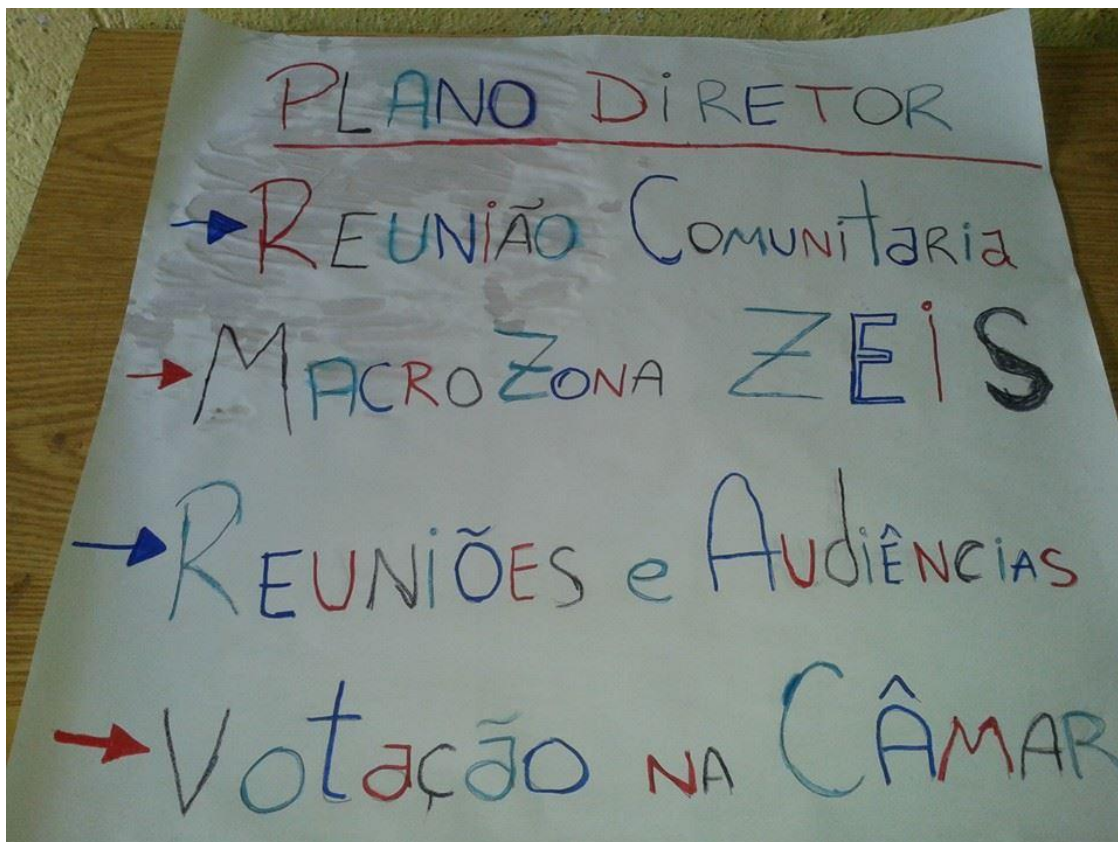 PLANO DiRETOR
REUNiÃO COMUNitaRia
MACROZONA ZEiS
REUNiÕES e AUdiÊNCiAS
VOtação NA CÂMAR